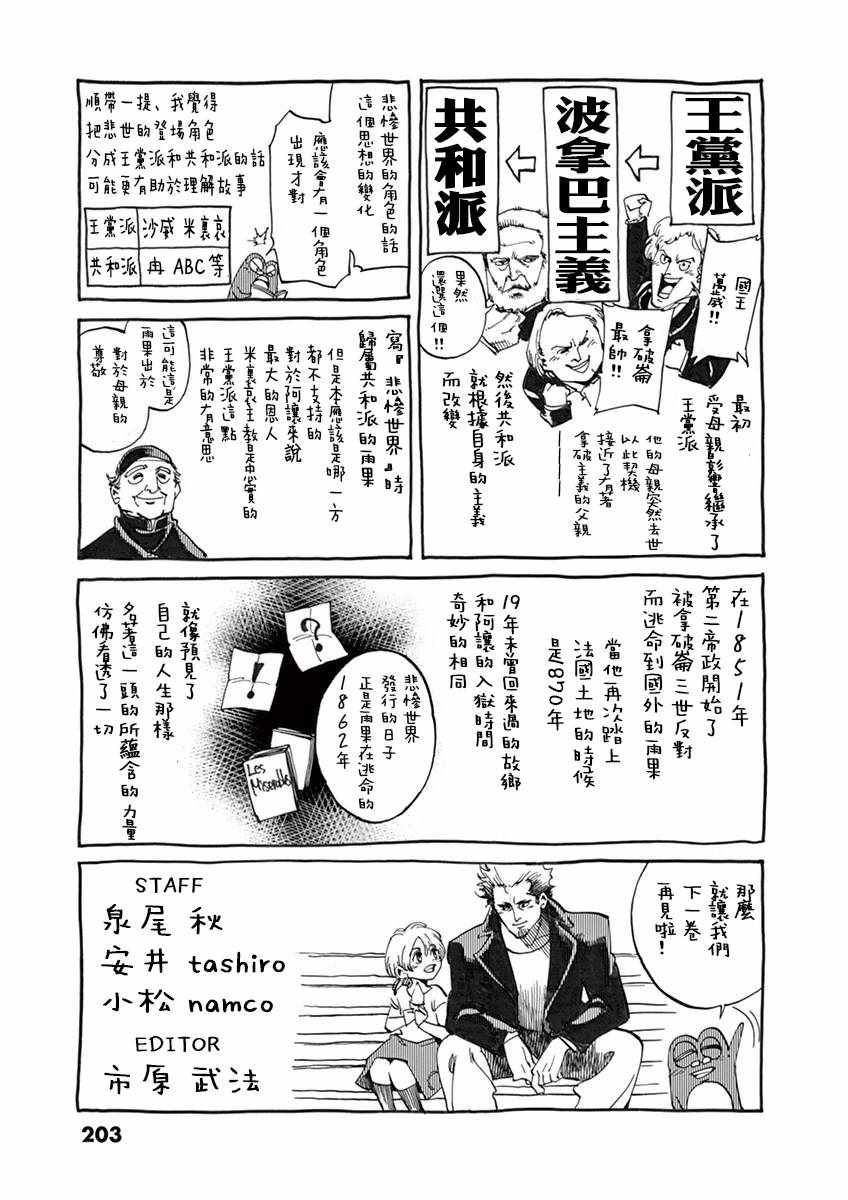 王黨派
波拿巴主義
共和派
國王
萬歲!!
拿破崙
最帥!!
果然
還選這個!!
最初
受母親影響繼承了
王黨派
他的母親突然去世
以此契機
接近了有著
拿破主義的父親
然後共和派
就根據自身的主義
而改變
悲慘世界的角色的話
這個思想的變化
應該會有一個角色
出現才對
順帶一提、我覺得
把悲世的登場角色
分成王黨派和共和派的話
可能更有助於理解故事
王黨派 沙威 米裏哀
共和派 冉 ABC等
寫『悲慘世界』時
歸屬共和派的雨果
但是本應該是哪一方
都不支持的
對於阿讓來說
最大的恩人
米裏哀主教是忠實的
王黨派這點
非常的有意思
這可能這是
雨果出於
對於母親的
尊敬
在1851年
第二帝政開始了
被拿破崙三世反對
而逃命到國外的雨果
當他再次踏上
法國土地的時候
是1870年
19年未曾回來過的故鄉
和阿讓的入獄時間
奇妙的相同
悲慘世界
發行的日子
正是雨果在逃命的
1862年
?
!
Les
Miserables
就像預見了
自己的人生那樣
名著這一頭的所蘊含的力量
仿佛看透了一切
那麼
就讓我們
下一卷
再見啦!
STAFF
泉尾 秋
安井 tashiro
小松 namco
EDITOR
市原 武法
203